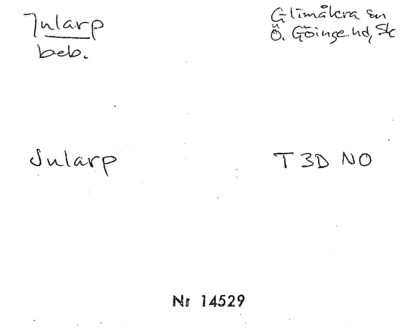 Jularp
beb.
Glimåkra sn
Ö. Göinge hd, Sk
Jularp
T 3D NO
Nr 14529